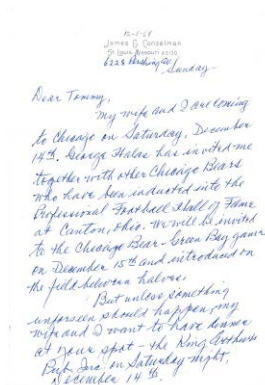 12-1-68
James G. Conzelman
St. Louis, Missouri
6228 Pershing Av/
Sunday-
Dear Tommy,
My wife and I are coming
to Chicago on Saturday, December
14th. George Halas has invited me
together with other Chicago Bears
who have been inducted into the
Professional Football Hall of Fame
at Canton, Ohio. We will be invited
to the Chicago Bear - Green Bay game
on December 15th and introduced on
the field between halves.
But unless something
unforseen should happen, my
wife and I want to have dinner
at your spot - the King Arthur's
Pub Inc. on Saturday night,
December 14th.